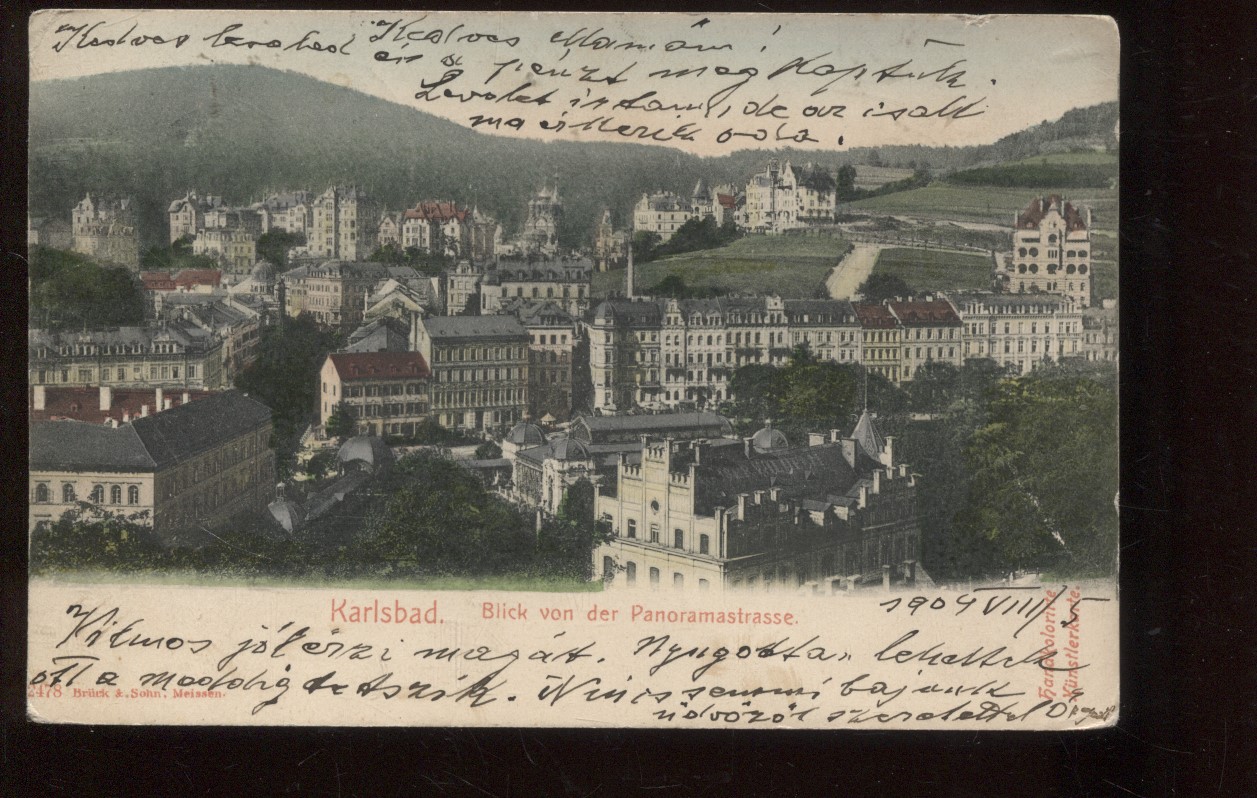 Kedves Mamám!
és a pénzt meg kaptuk.
Levelet irtam, de az isalt
ma érkezik oda.
Karlsbad. Blick von der Panoramastrasse.
1904 VIII/5
Vilmos jól érzi magát. Nyugottan lehettek
ott a meddig tetszik. Nincs semmi bajunk
üdvözöl szeretettel
2478 Brück & Sohn, Meissen.
Handkolorirte
Künstlerkarte.